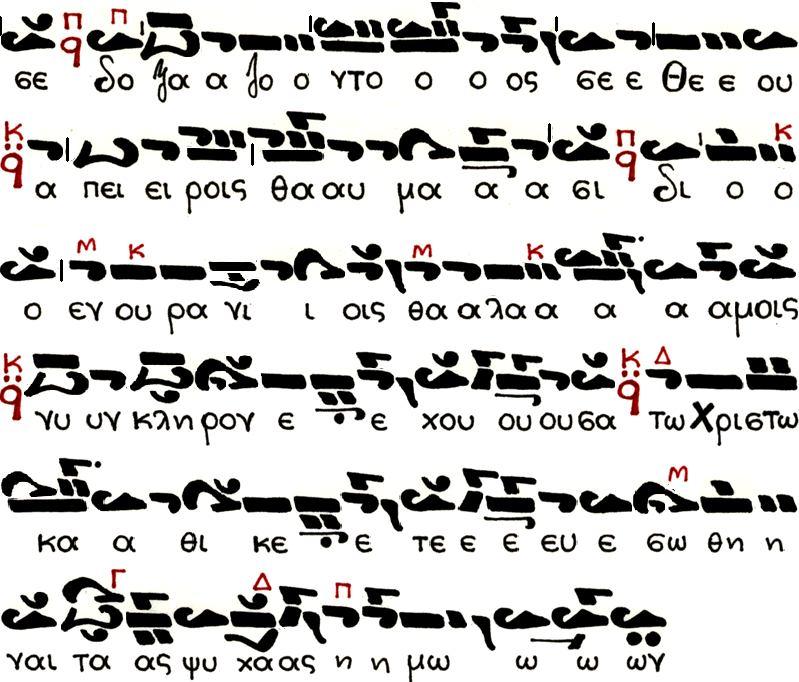 σε δο ξα α ζο ο ντο ο ο ος σε ε Θε ε ου
α πει ει ροις θα αυ μα α α σι δι ο ο
ο εν ου ρα νι ι οις θα α λα α α α αμοις
νυ υν κλη ρον ε ε χου ου ου σα τω Χρι στω
κα α θι κε ε τε ε ε ευ ε σω θη η
ναι τα ας ψυ χα ας η η μω ω ω ων